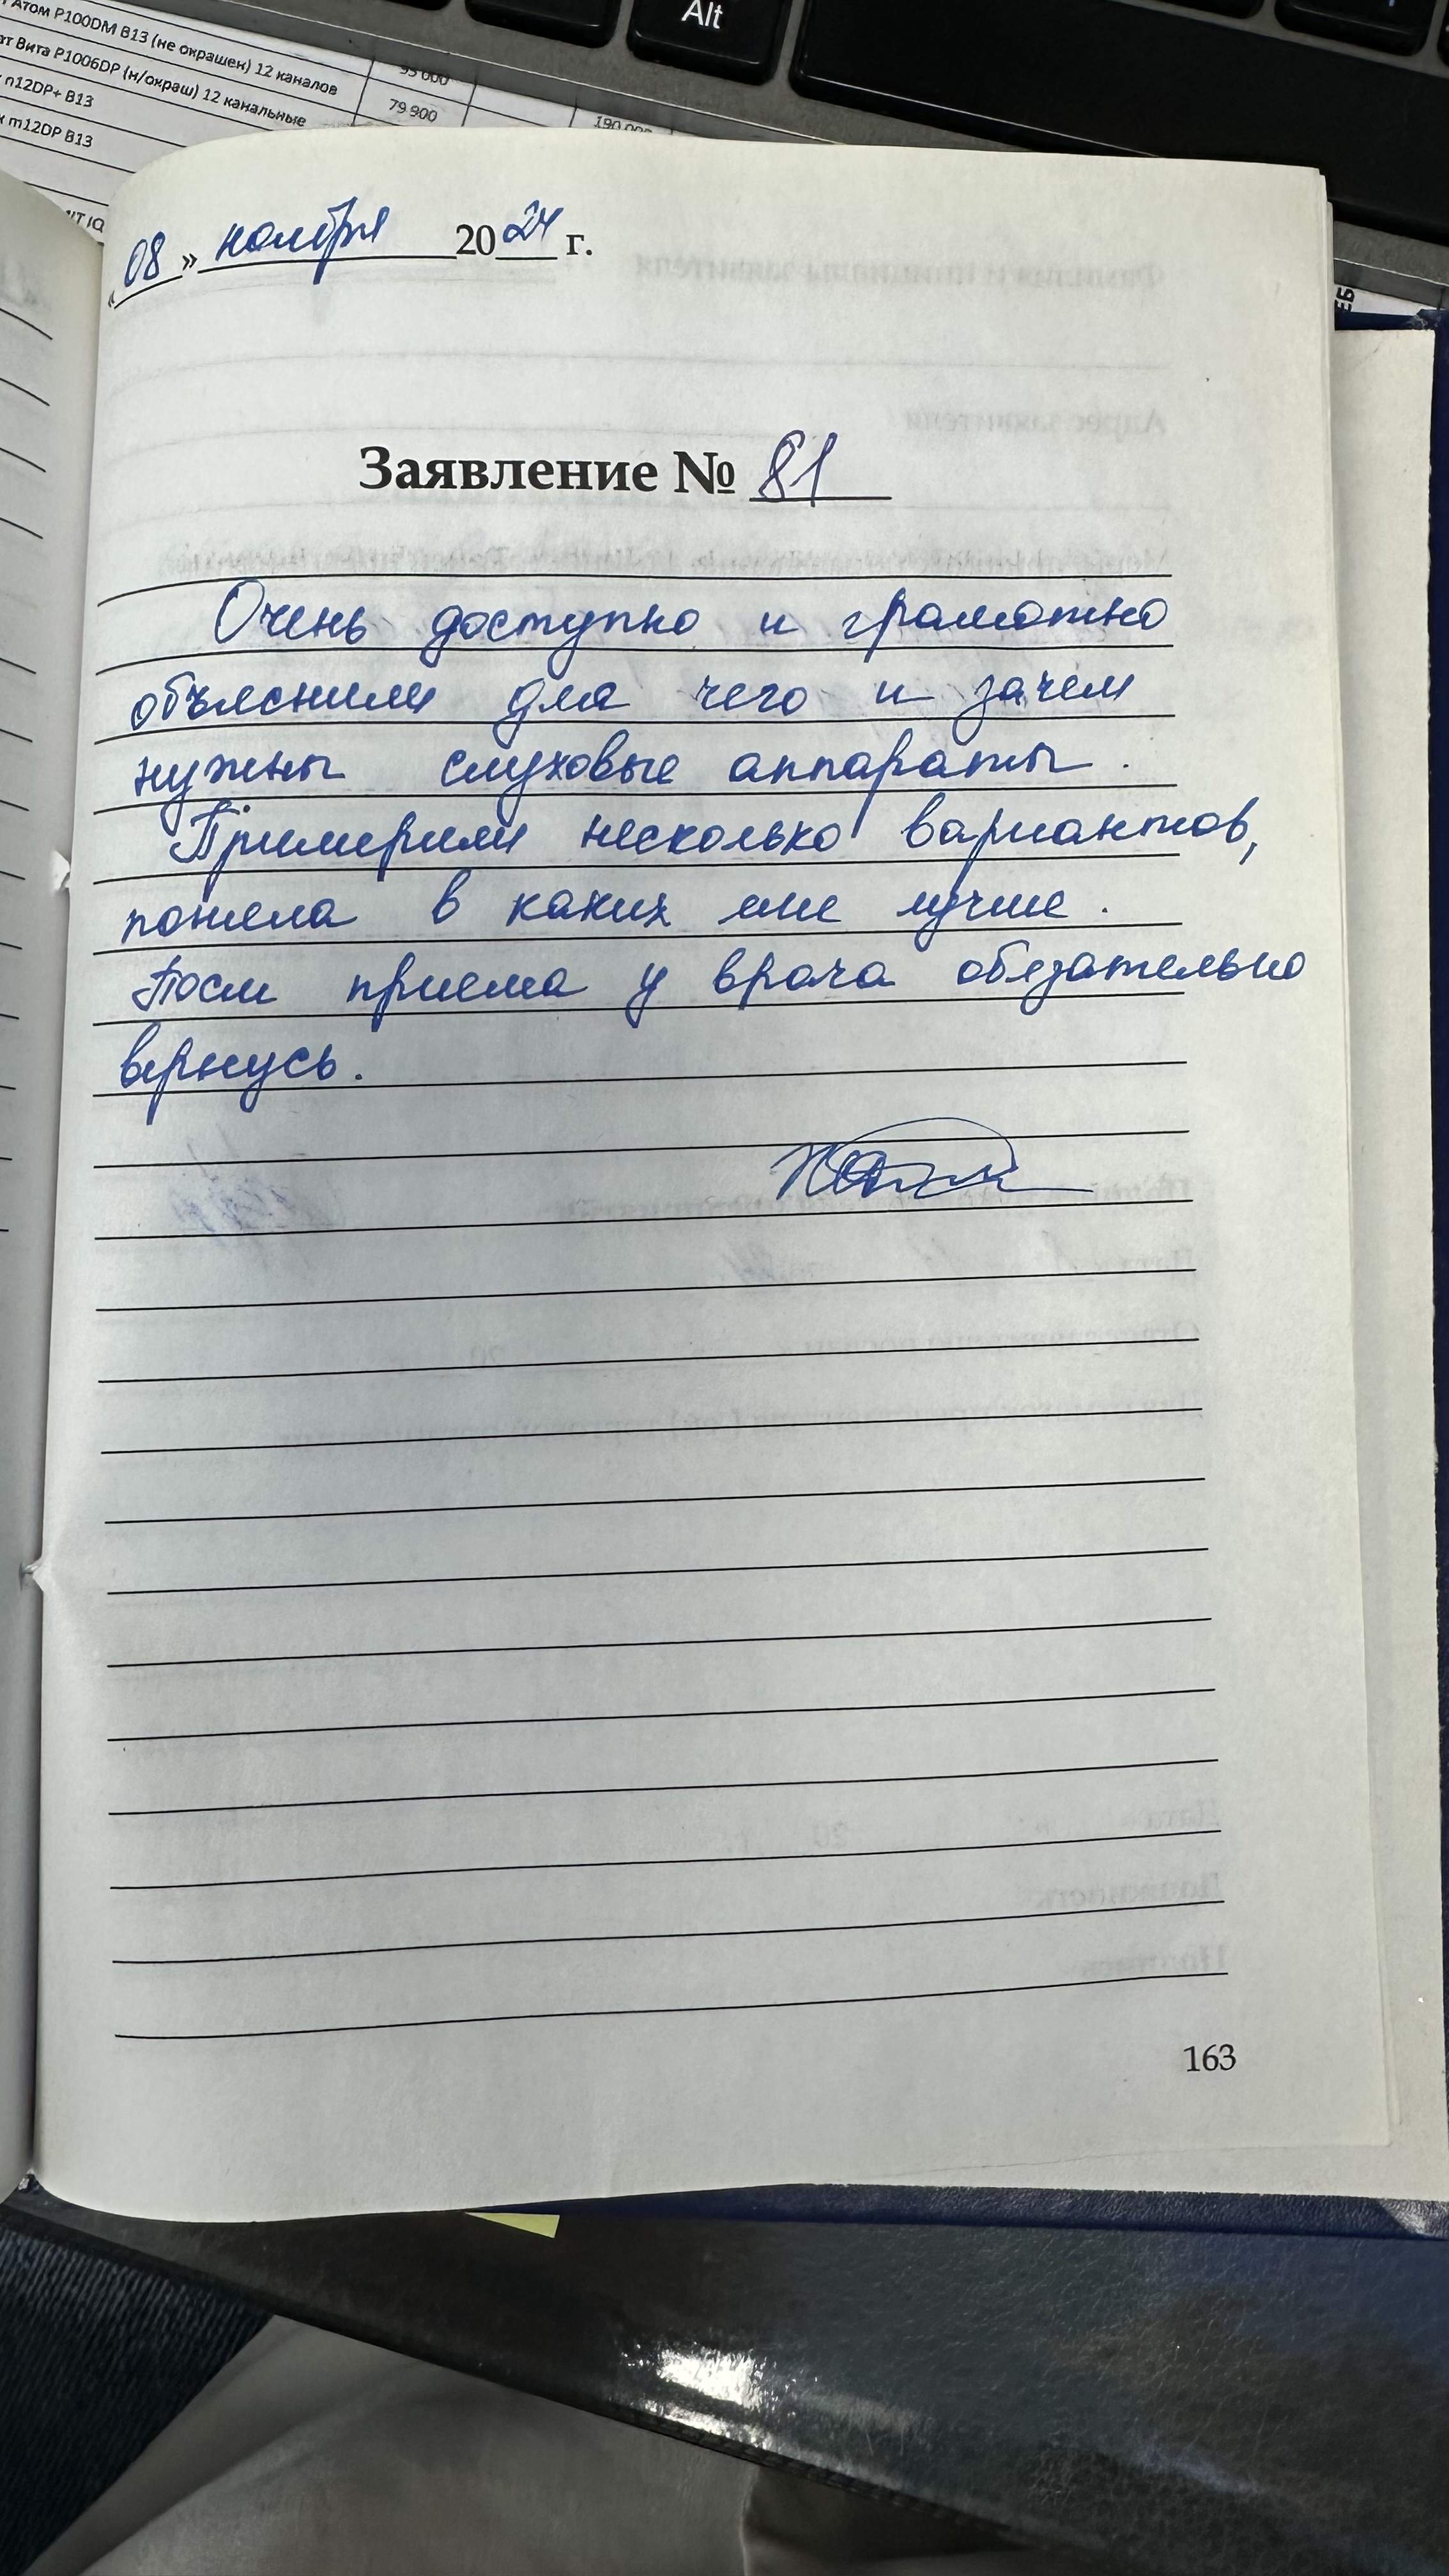 Alt
Атом P100DM B13 (не окрашен) 12 каналов
95 000
Вита P1006DP (н/окраш) 12 канальные
79 900
n12DP+ B13
190 000
m12DP B13
«08» ноября 2024 г.
Заявление № 81
Очень доступно и грамотно
объяснили для чего и зачем
нужны слуховые аппараты.
Примерили несколько вариантов,
поняла в каких мне лучше.
После приема у врача обязательно
вернусь.
163